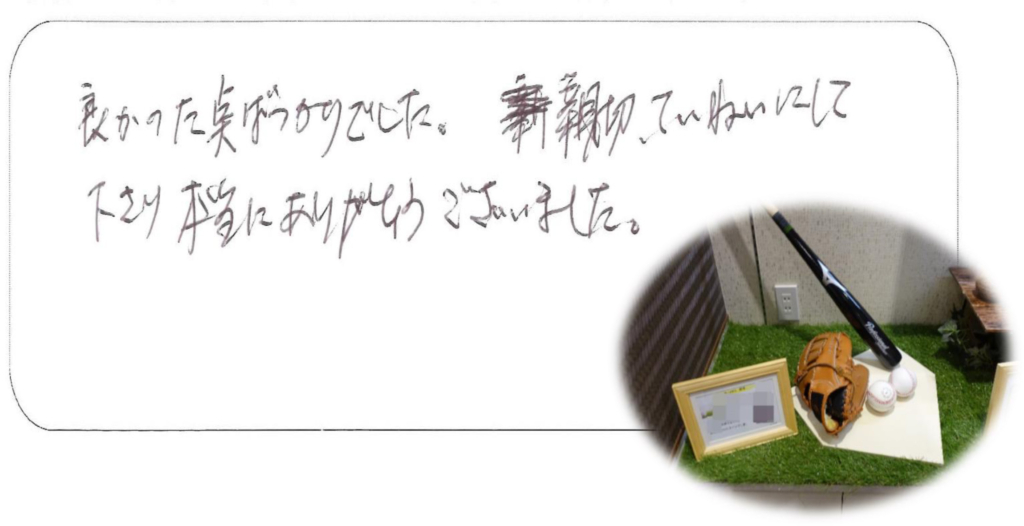 良かった点ばかりでした。 親切、ていねいにして
下さり 本当にありがとう ございました。